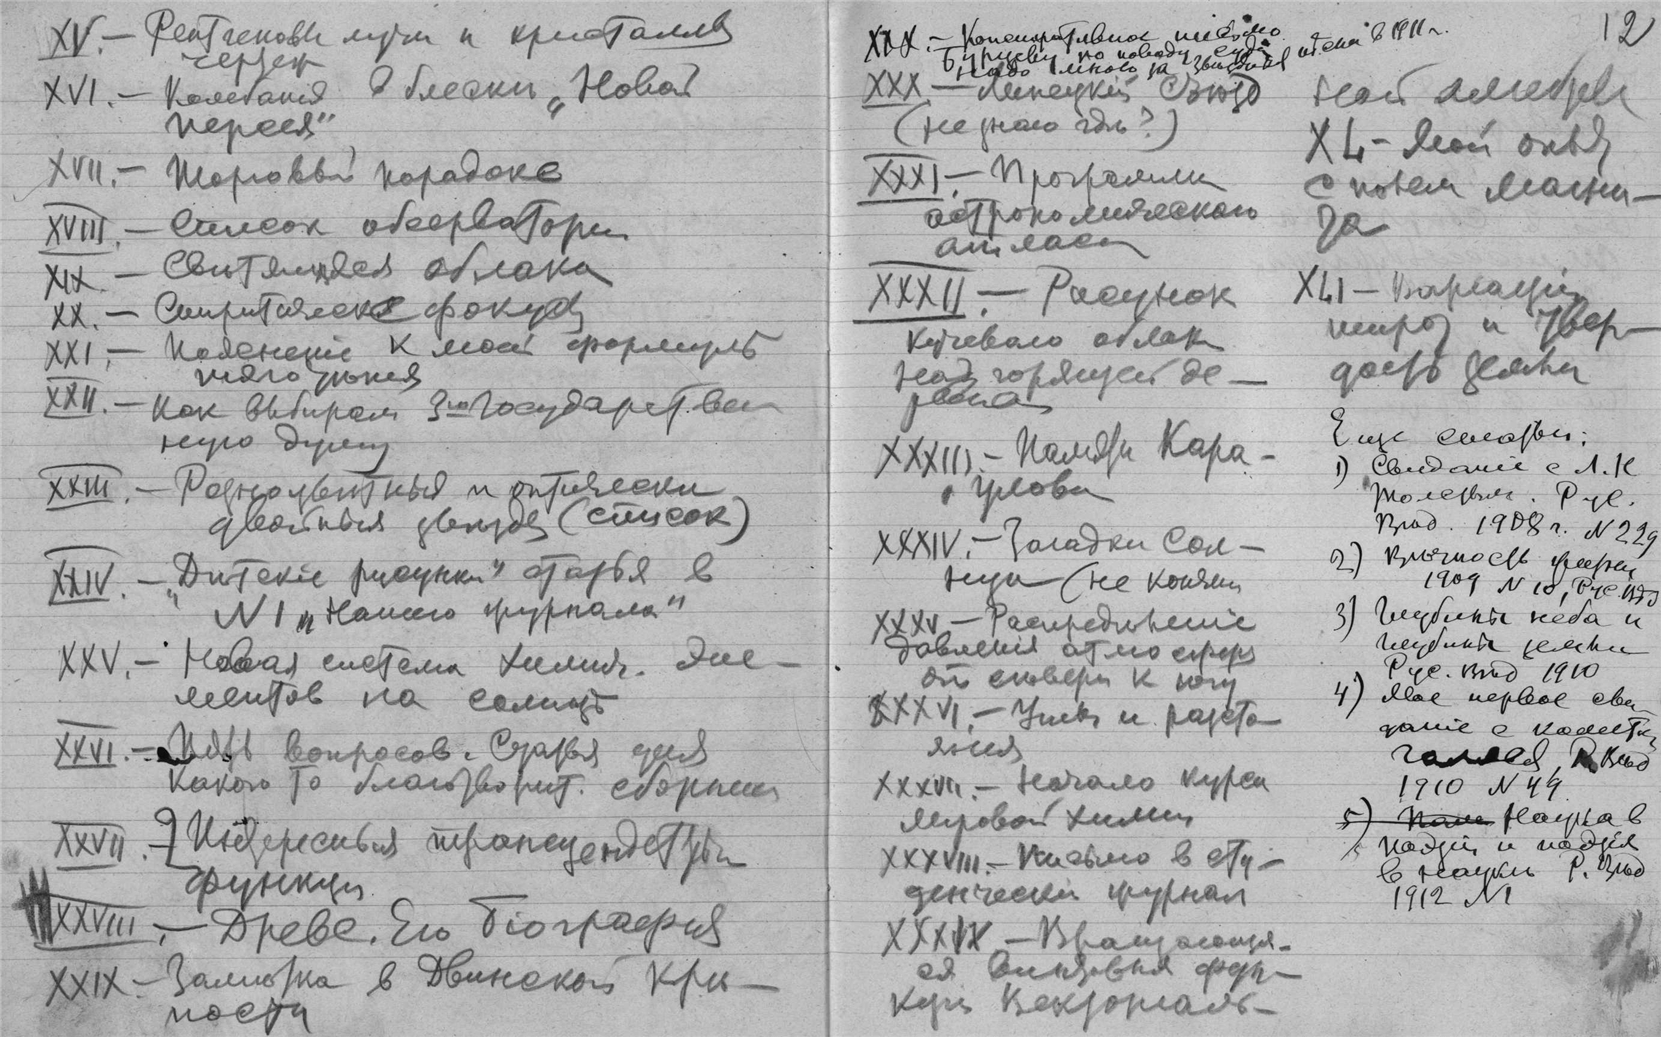 XV. – Рентгеновы лучи и кристаллы
XVI. – Колебания в блески „Новой
Персея"
XVII. – Торовый порадокс
XVIII. – Список обсерваторий
XIX – Светящаяся облака
XX. – Спиритические фокусы
XXI. – Пояснение к моей формуле
тяготения
XXII. – Как выбирали 3ю Государствен
ную думу
XXIII. – Радиольетныя и оптически
двойныя звезды (список)
XXIV. – „Дитские рисунки" статья в
N 1 „Нашего журнала"
XXV. – Новая система химич. эле –
ментов на солнце
XXVI. – Пять вопросов. Статья для
какого то благотворит. сборника
XXVII. – Интересныя трансцендентныя
функции
XXVIII. – Древс. Его биография
XXIX – Заметка в Двинской Кре –
пости
12
XXX. – письмо
Бурцеву по поводу суда
надо много за в 1911 г.
XXX – Липецкий Съезд
(не знаю где?)
XXXI. – Программа
астрономического
атласа
XXXII. – Рисунок
кучевого облака
над горящей де –
ревней
XXXIII. – Памяти Кара –
улова
XXXIV. – Загадки Сол –
нца (не конец)
XXXV – Распределение
давления атмосферы
от севера к югу
XXXVI. – Углы и расто –
яния
XXXVII. – Начало курса
мировой химии
XXXVIII. – Письмо в сту –
денческий журнал
XXXIX – Вращающа –
яся винтовыя фун –
кции Векториаль –
ной алгебры
XL – Мой ответ
с полем магни –
та
XLI – Вариации
широт и твер –
дость земли
Еще статьи:
1) Свидание с Л. Н
Толстым. Рус.
Вед. 1908 г. N 229
2) Вечность жизни
1909 N 10, Рус. Вед
3) Глубины неба и
глубины земли
Рус. Вед 1910
4) Мое первое сви
дание с кометой
Галлея, Р. Вед
1910 N 49
5) Наука в
поэзии и поэзия
в науке Р. Вед
1912 N 1